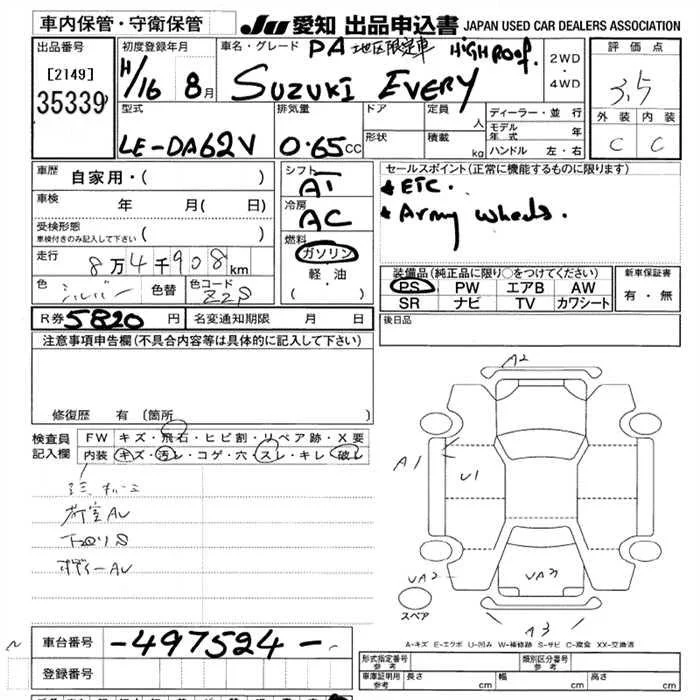 車内保管・守衛保管
JU 愛知 出品申込書 JAPAN USED CAR DEALERS ASSOCIATION
出品番号
[2149]
35339
初度登録年月
H/16 8月
車名・グレード PA 地区限定車 HIGH ROOF.
SUZUKI EVERY
2WD
・
4WD
評価点
3.5
外装 内装
C C
型式
LE-DA62V
排気量
0.65CC
ドア
形状
定員 人
積載 kg
ディーラー・並行
モデル年式 年
ハンドル 左・右
車歴 自家用・( )
車検 年 月( 日)
受検形態
車検付きのみ記入して下さい ( )
走行 8万4千908km
色 シルバー 色替 色コード Z2S
シフト
AT
冷房
AC
燃料
ガソリン
軽・油
( )
セールスポイント(正常に機能するものに限ります)
★ ETC.
★ Army wheels.
装備品(純正品に限り○をつけてください)
PS PW エアB AW
SR ナビ TV カワシート
新車保証書
有・無
R券 5820円 名変通知期限 月 日
後日品
注意事項申告欄(不具合内容等は具体的に記入して下さい)
修復歴 有 (箇所 )
検査員記入欄
FW キズ・飛石・ヒビ割・リペア跡・X要
内装 キズ・汚レ・コゲ・穴・スレ・キレ・破レ
下回りS
ボディーAU
A2
A1
U1
UA2
UA3
A3
スペア
A-キズ E-エクボ U-凹み W-補修跡 S-サビ C-腐食 XX-交換済
車台番号 -497524-
登録番号
形式指定番号 参考
類別区分番号 参考
車庫証明用 参考 長さ cm 幅 cm 高さ cm